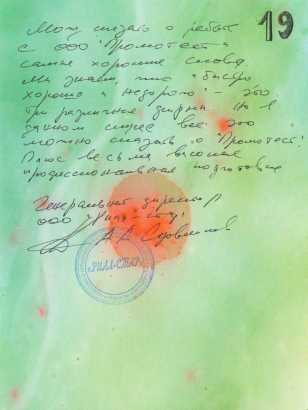 19
Могу сказать о работе
с ООО "Промотест"
самые хорошие слова.
Мы знаем, что "быстро
хорошо и недорого" - это
три различные фирмы. Но в
данном случае все это
можно сказать о "Промотест".
Плюс весьма высокая
профессиональная подготовка
Генеральный директор
ООО
А.В.